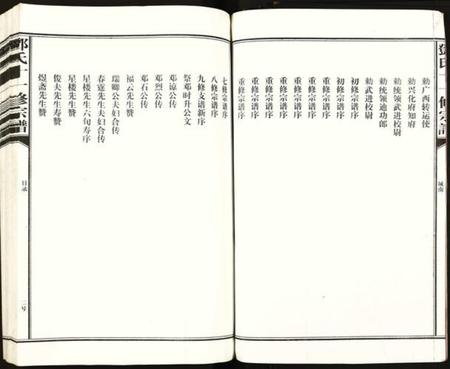 邓氏十一修宗谱
城南
勅广西转运使
勅兴化府知府
勅统领武进校尉
勅统领迪功郎
勅武进校尉
初修宗谱序
初修宗谱序
重修宗谱序
重修宗谱序
重修宗谱序
重修宗谱序
重修宗谱序
重修宗谱序
重修宗谱序
七修宗谱序
八修宗谱序
九修支谱新序
祭邓时升公文
邓谅公传
邓烈公传
邓石公传
福云先生赞
瑞卿公夫妇合传
春霆先生夫妇合传
星楼先生六旬寿序
星楼先生赞
俊夫先生寿赞
煜斋先生赞
邓氏十一修宗谱
目录